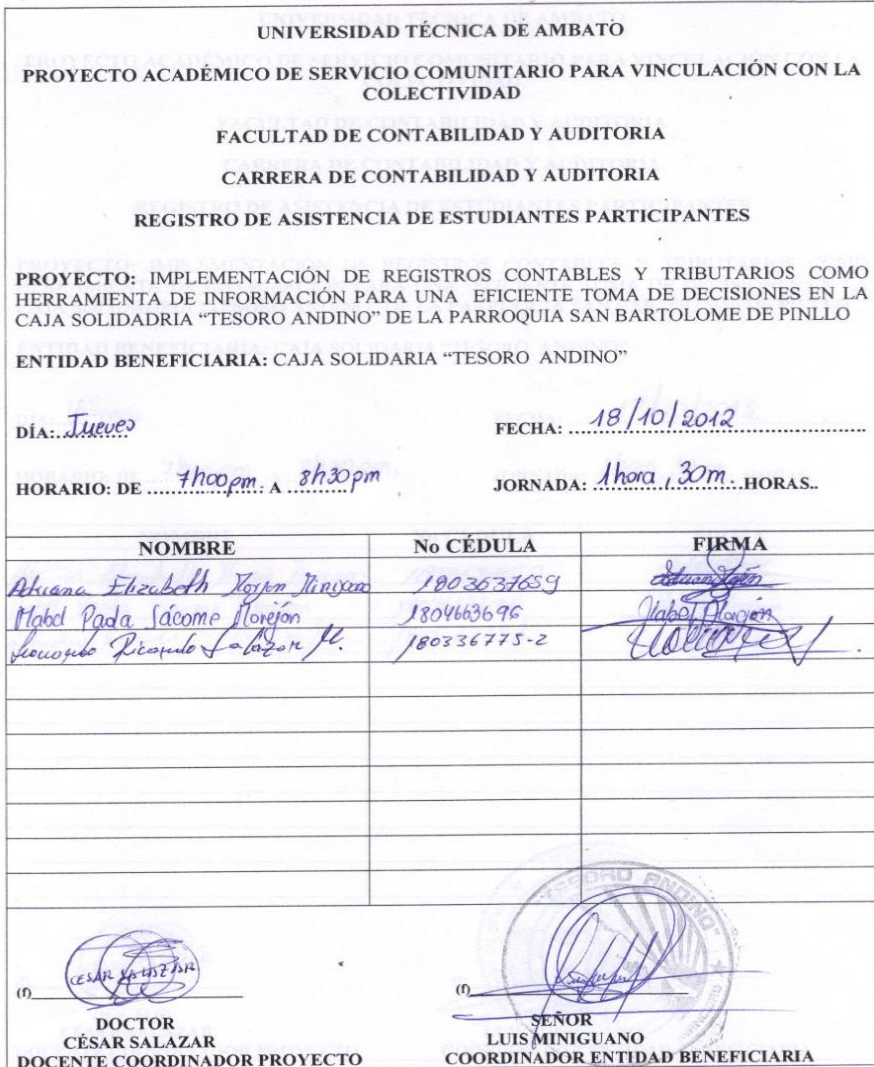 UNIVERSIDAD TÉCNICA DE AMBATO
PROYECTO ACADÉMICO DE SERVICIO COMUNITARIO PARA VINCULACIÓN CON LA
COLECTIVIDAD
FACULTAD DE CONTABILIDAD Y AUDITORIA
CARRERA DE CONTABILIDAD Y AUDITORIA
REGISTRO DE ASISTENCIA DE ESTUDIANTES PARTICIPANTES
PROYECTO: IMPLEMENTACIÓN DE REGISTROS CONTABLES Y TRIBUTARIOS COMO
HERRAMIENTA DE INFORMACIÓN PARA UNA EFICIENTE TOMA DE DECISIONES EN LA
CAJA SOLIDADRIA “TESORO ANDINO” DE LA PARROQUIA SAN BARTOLOME DE PINLLO
ENTIDAD BENEFICIARIA: CAJA SOLIDARIA “TESORO ANDINO”
DÍA: Jueves FECHA: 18/10/2012
HORARIO: DE 7h00pm A 8h30pm JORNADA: 1hora, 30m. HORAS..
NOMBRE No CÉDULA FIRMA
Adriana Elizabeth 1803637659
Mabel Jácome Morejón 1804663696 Mabel
Ricardo Salazar M. 180336775-2
TESORO ANDINO
CESAR SALAZAR
(f) (f)
DOCTOR SEÑOR
CÉSAR SALAZAR LUIS MINIGUANO
DOCENTE COORDINADOR PROYECTO COORDINADOR ENTIDAD BENEFICIARIA